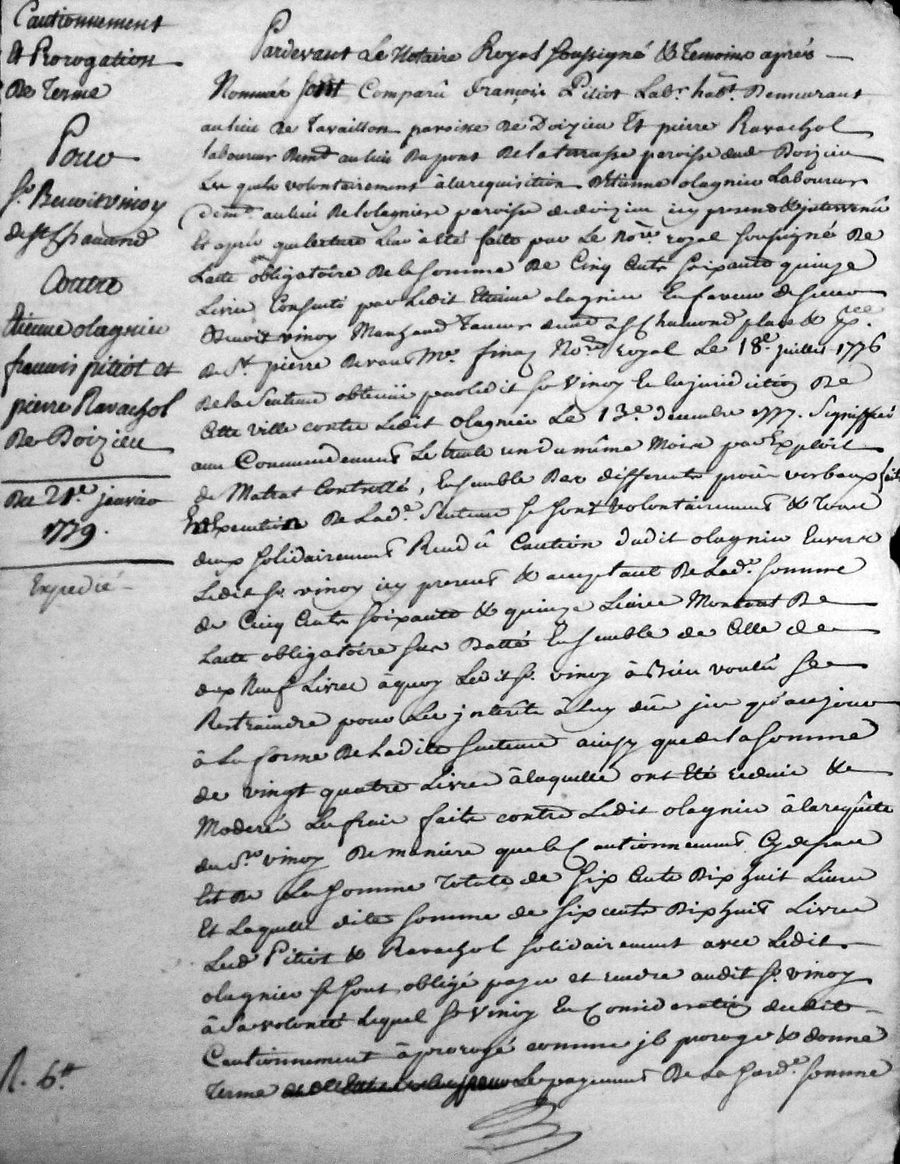 Cautionnement
et Prorogation
De Terme
Pour
Sr. Benoit vinoy
de St Chamond
Contre
Etienne olagnier
francois pitiot et
pierre Ravachol
De Doizieu
Du 21e. janvier
1779.
Expedié
R. 6tt
Pardevant Le Notaire Royal soussigné & Temoins après
Nommés sont Comparû François Pitiot Labr. habt. Demeurant
au lieu de Tavaillon paroisse De Doizieu Et pierre Ravachol
laboureur Demt. au lieu du pont De la terrasse paroisse dud. Doizieu
Lesquels volontairement à la requisition d'Etienne olagnier Laboureur
Demt. au lieu De lolagniere paroisse de doizieu icy present & intervenu
Et après que lecture leur à été faite par Le Nore. royal soussigné De
L'acte obligatoire De la somme De Cinq Cents soixante quinze
Livres Consenti par Ledit Etienne olagnier En faveur de sieur
Benoit vinoy Marchand Taneur demt. à St Chamond place & psse.
de St. pierre devant Me. finaz Nore. royal Le 18e. juillet 1776
De la Sentence obtenüe par Ledit sr. vinoy En la juridiction De
Cette ville contre Ledit olagnier Le 13e. decembre 1777. Signiffiée
avec Commandement Le trente un du même Mois par Exploit
de Matrat Controllé, Ensemble Des differents procès verbaux faits
En Execution De Lade. Sentence se sont volontairement & Tous
deux solidairement Rendû Caution dudit olagnier Envers
Ledit sr. vinoy icy present & acceptant De Lade. somme
de Cinq Cents soixante & quinze Livres Montant De
L'acte obligatoire sus Datté Ensemble de Celle de
dix Neuf Livres à quoy Ledit sr. vinoy à Bien voulû se
Restraindre pour Les interets à luy dûs jusqu'aujour
à La forme De Ladite sentence ainsy que de la somme
de vingt quatre Livres à laquelle ont Eté reduis &
Moderé Les frais faits contre Ledit olagnier à la requête
du Sr. vinoy De maniere que le Cautionnement Cy dessus
Est De La somme Totale de six Cents Dix huit Livres
Et Laquelle dite somme de six cents Dix huit Livres
Lesd. Pitiot & Ravachol solidairement avec Ledit
olagnier se sont obligé payer et rendre audit sr. vinoy
à Sa volonté Lequel sr Vinoy En Consideration dudit
Cautionnement à prorogé comme il proroge & donne
Terme Le payement De La susde. somme